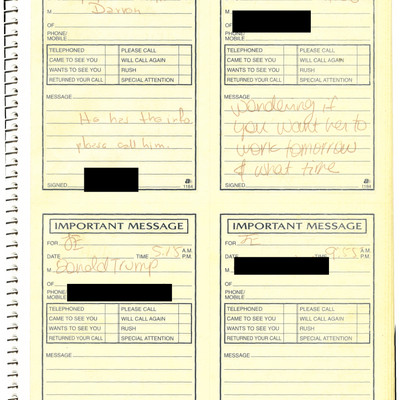 M Darron
OF
PHONE/
MOBILE
TELEPHONED PLEASE CALL
CAME TO SEE YOU WILL CALL AGAIN
WANTS TO SEE YOU RUSH
RETURNED YOUR CALL SPECIAL ATTENTION
MESSAGE
He has the info
please call him.
SIGNED 1184
M
OF
PHONE/
MOBILE
TELEPHONED PLEASE CALL
CAME TO SEE YOU WILL CALL AGAIN
WANTS TO SEE YOU RUSH
RETURNED YOUR CALL SPECIAL ATTENTION
MESSAGE
wondering if
you want her to
work tomorrow
& what time
SIGNED 1184
IMPORTANT MESSAGE
FOR JE
DATE TIME 5:15 A.M.
P.M.
M Donald Trump
OF
PHONE/
MOBILE
TELEPHONED PLEASE CALL
CAME TO SEE YOU WILL CALL AGAIN
WANTS TO SEE YOU RUSH
RETURNED YOUR CALL SPECIAL ATTENTION
MESSAGE
IMPORTANT MESSAGE
FOR JE
DATE TIME A.M.
P.M.
M
OF
PHONE/
MOBILE
TELEPHONED PLEASE CALL
CAME TO SEE YOU WILL CALL AGAIN
WANTS TO SEE YOU RUSH
RETURNED YOUR CALL SPECIAL ATTENTION
MESSAGE